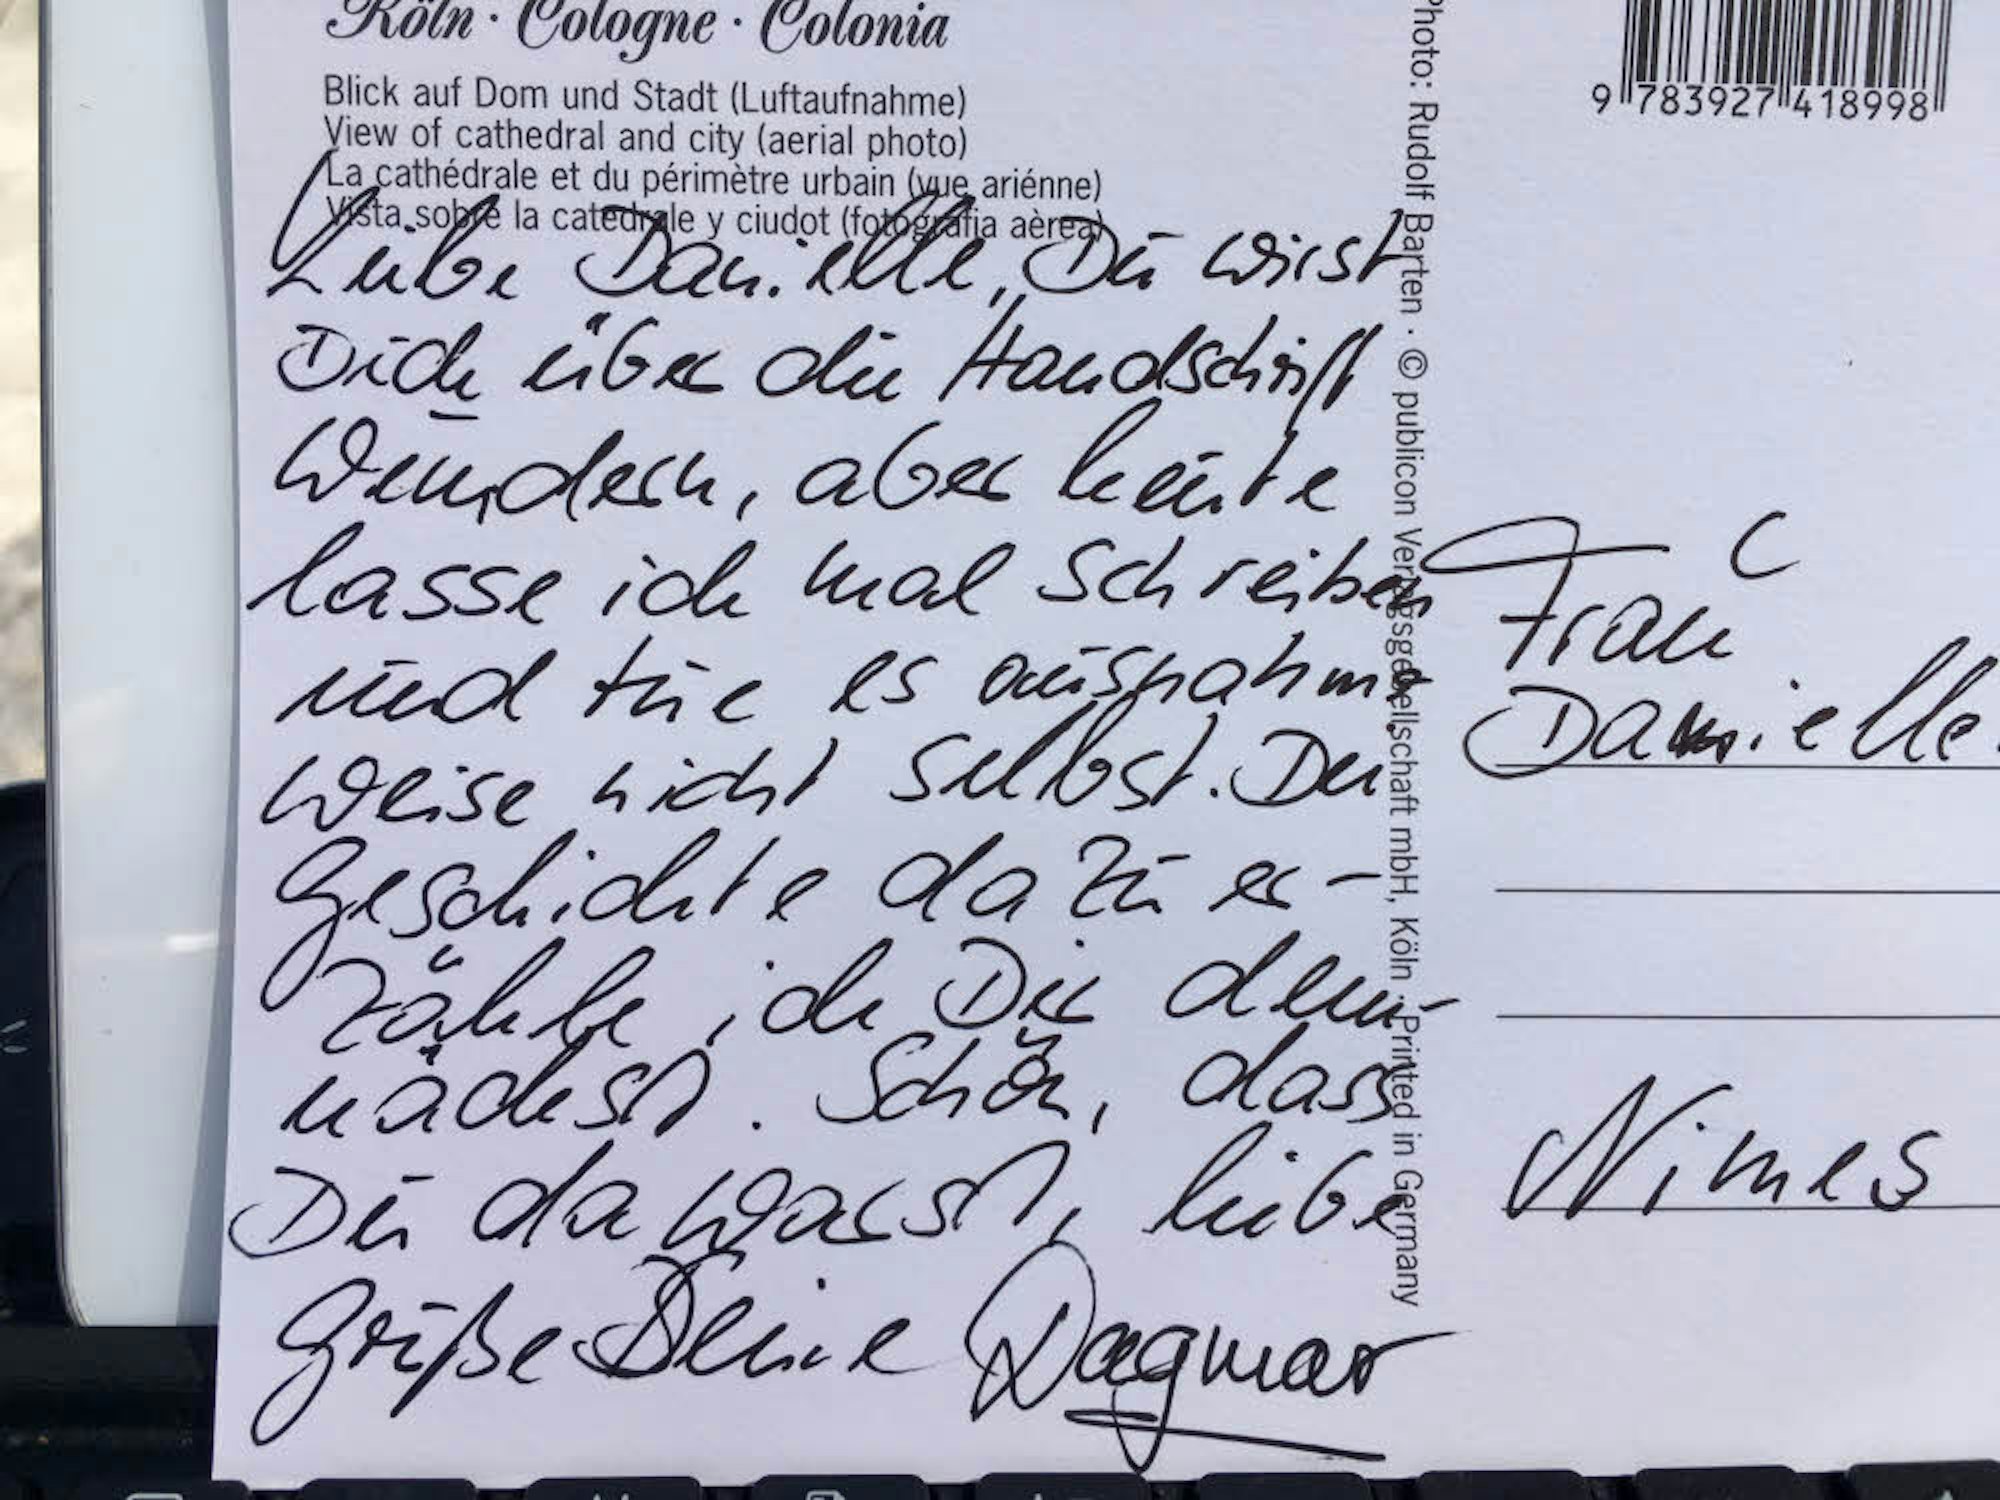 Köln · Cologne · Colonia
Blick auf Dom und Stadt (Luftaufnahme)
View of cathedral and city (aerial photo)
La cathédrale et du périmètre urbain (vue ariénne)
Vista sobre la catedrale y ciudot (fotografia aèrea)
Liebe Danielle, Du wirst
Dich über die Handschrift
wundern, aber heute
lasse ich mal schreiben
und tue es ausnahms
weise nicht selbst. Die
Geschichte dazu er-
zähle ich Dir dem-
nächst. Schön, dass
Du da warst, liebe
Grüße Deine Dagmar
Photo: Rudolf Barten · © publicon Verlagsgesellschaft mbH, Köln · Printed in Germany
9 783927 418998
Frau C
Danielle
Nimes